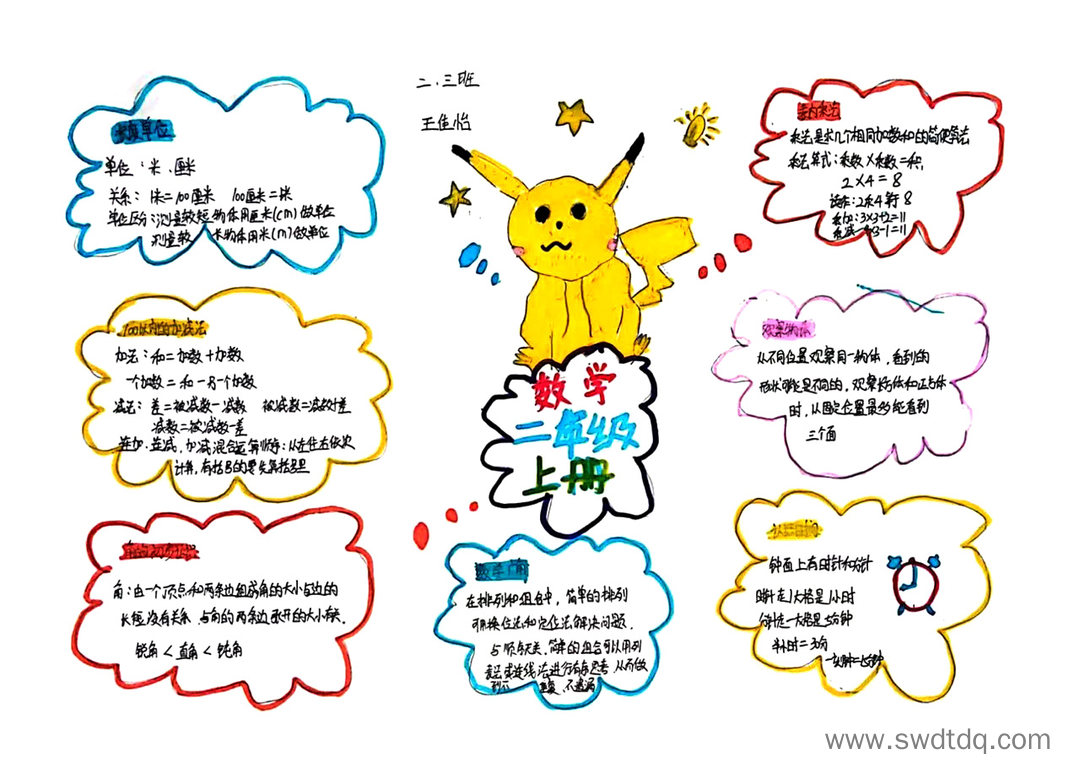 二.三班
王佳怡
长度单位
单位:米、厘米
关系:1米=100厘米 100厘米=1米
单位区分:测量较短物体用厘米(cm)做单位
测量较 长物体用米(m)做单位
100以内的加减法
加法:和=加数+加数
一个加数=和-另一个加数
减法:差=被减数-减数 被减数=减数+差
减数=被减数-差
连加.连减,加减混合运算顺序:从左往右依次
计算,有括号的要先算括号里
角的初步认识
角:由一个顶点和两条边组成角的大小与边的
长短没有关系,与角的两条边张开的大小有关.
锐角<直角<钝角
数学
二年级
上册
数学广角
在排列和组合中,简单的排列
可用换位法和定位法解决问题.
与顺序无关.简单的组合可以用列
表法或连线法进行有序思考,从而做
到不 重复,不遗漏
表内乘法
乘法是求几个相同加数和的简便算法
乘法算式:乘数×乘数=积.
2×4=8
读作:2乘4等于8
乘加:3×3+2=11
乘减
观察物体
从不同位置观察同一物体,看到的
形状可能是不同的,观察长方体和正方体
时,从固定位置最多能看到
三个面
认识时间
钟面上有时针和分针
时针走1大格是1小时
分针走一大格是5分钟
半小时=30分
一刻钟=15分钟
www.swdtdq.com